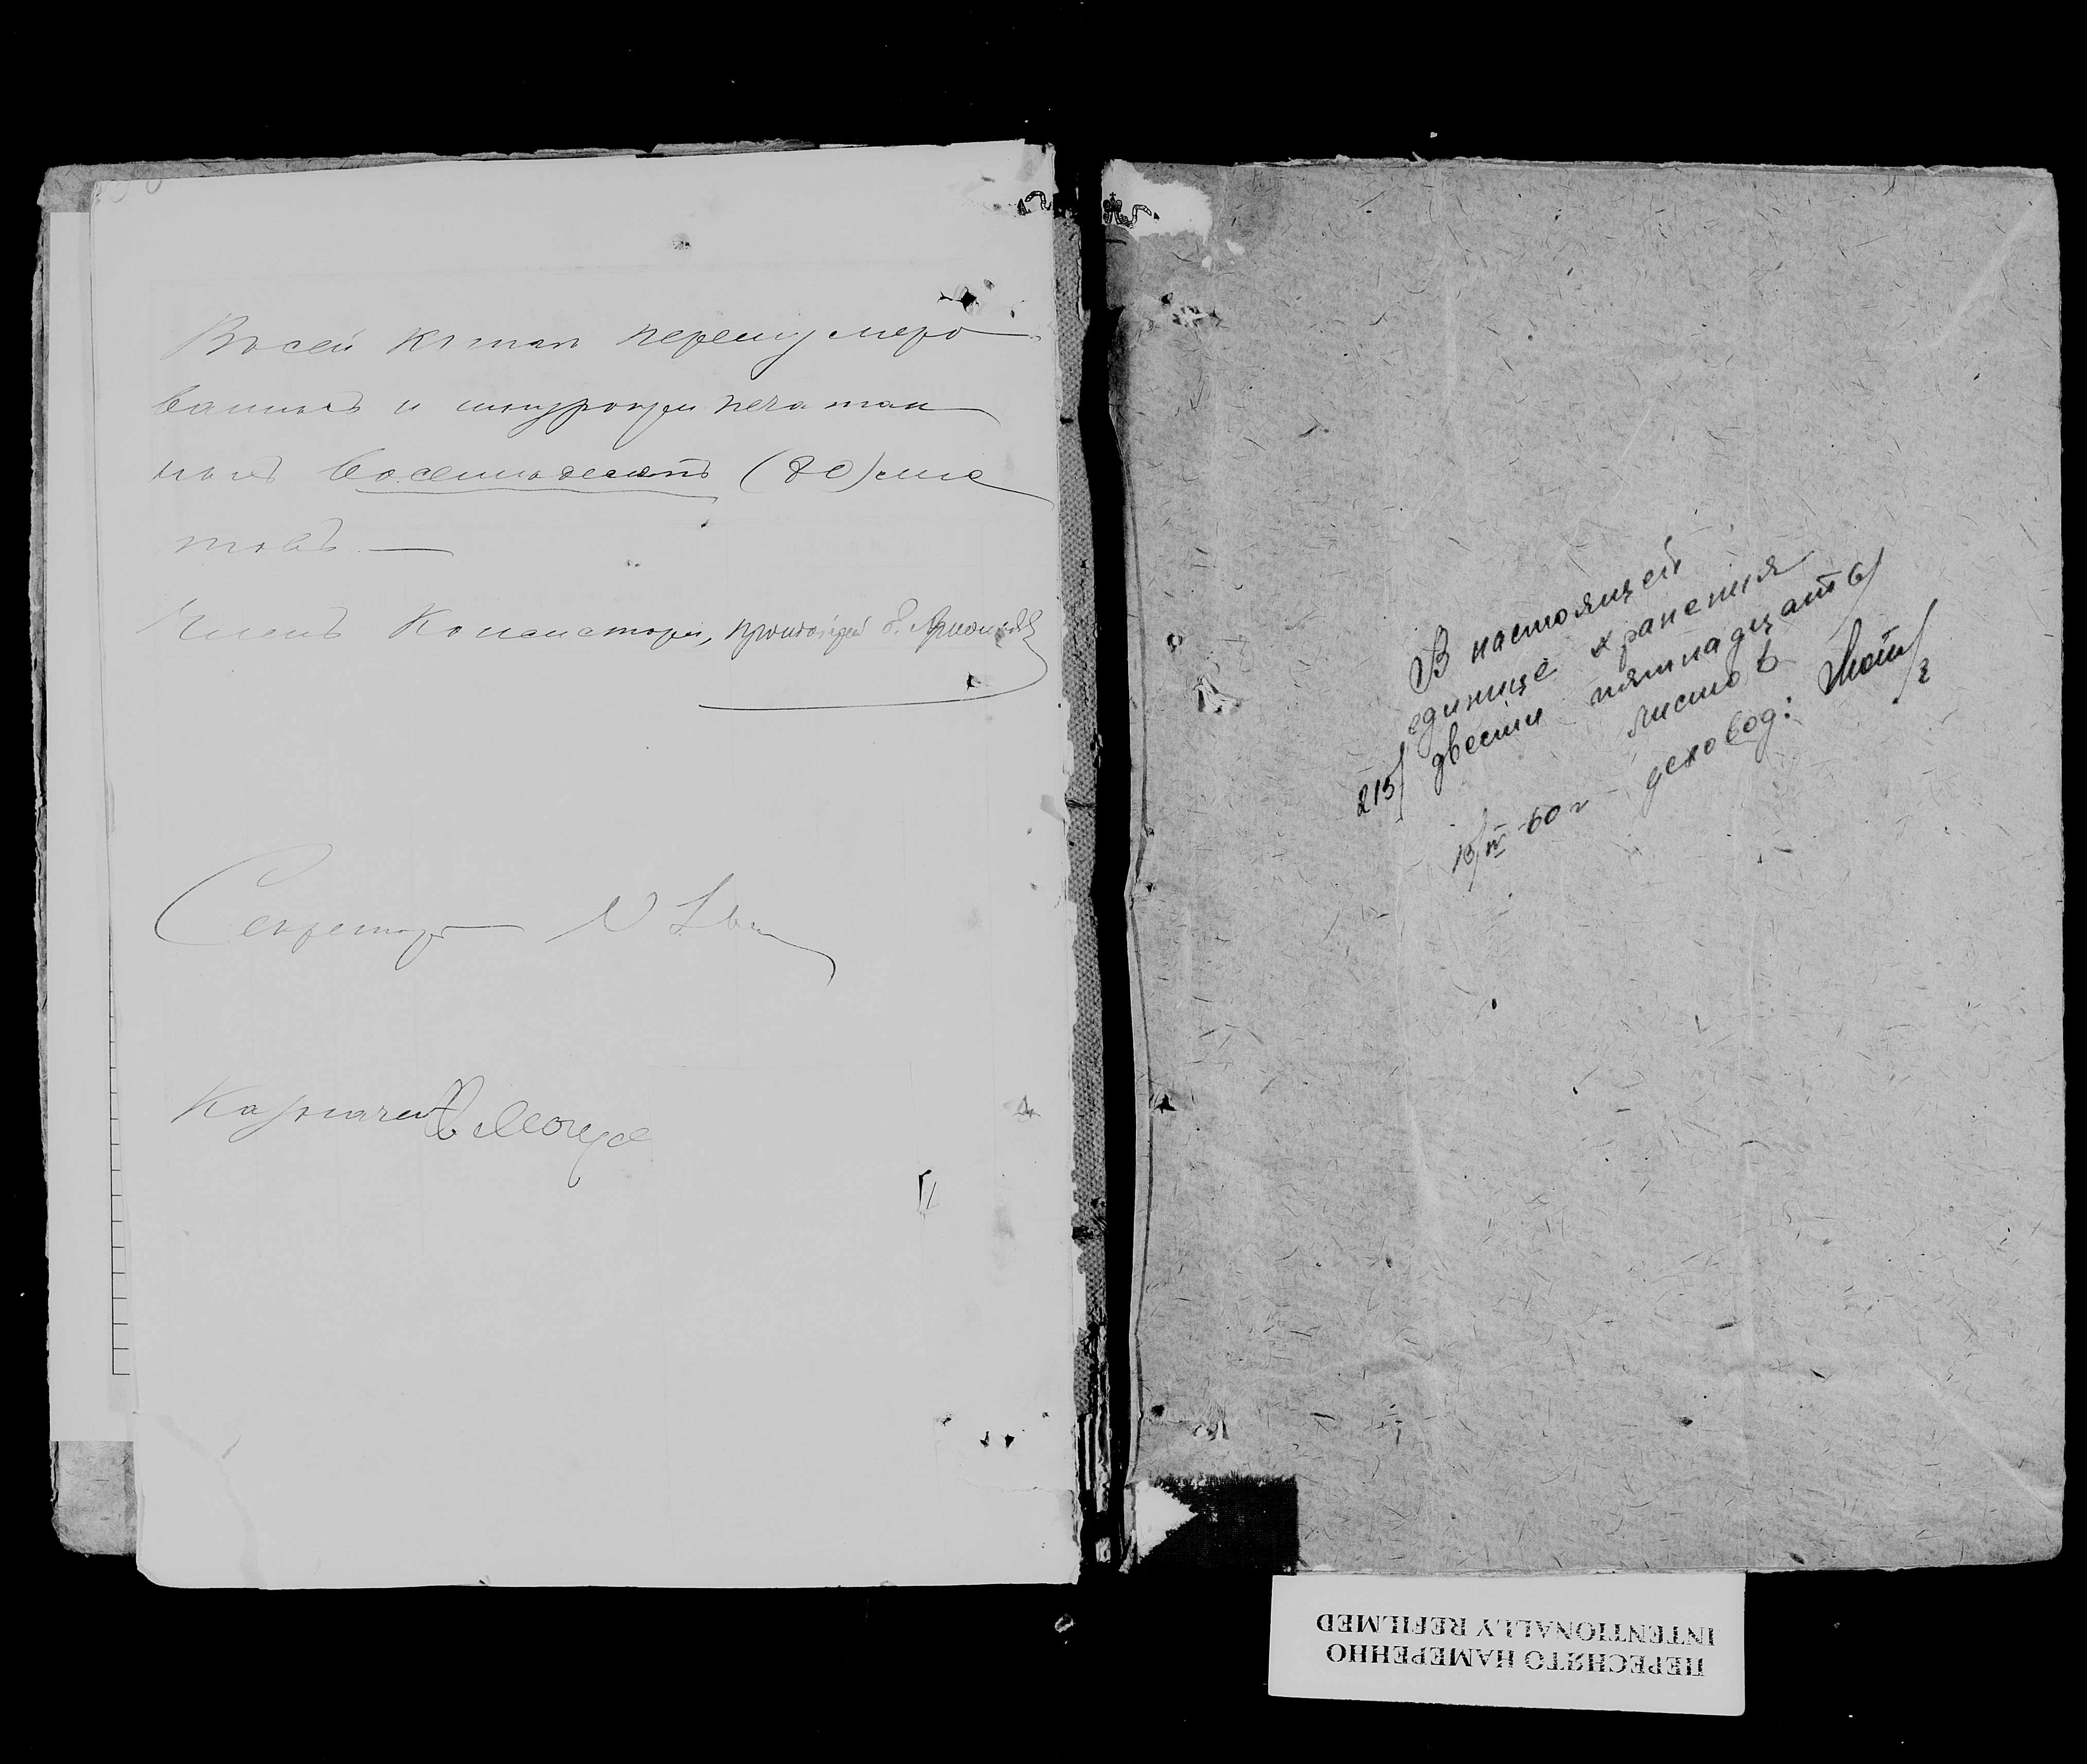 Въ сей книгѣ перенумеро
ванныхъ и шнурозапечатан
ныхъ восемьдесятъ (80) лис
товъ. —
Членъ Консисторіи, протоіерей
Секретарь
Казначей
В настоящей
единице хранения
215/ двести пятнадцать/
листов
13/IV-60 г деловод:
ПЕРЕСНЯТО НАМЕРЕННО
INTENTIONALLY REFILMED